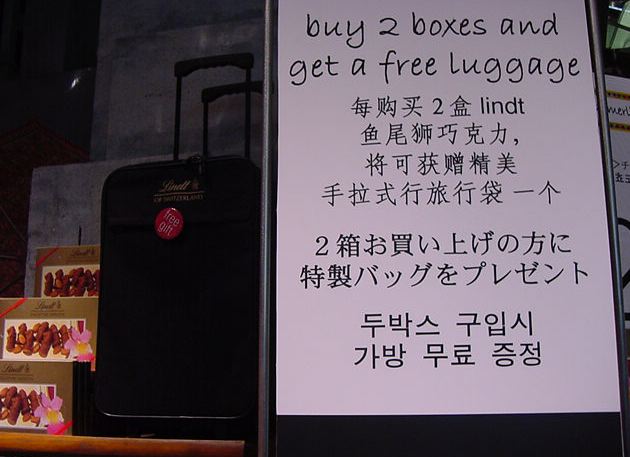 buy 2 boxes and
get a free luggage
每购买2盒 lindt
鱼尾狮巧克力,
将可获赠精美
手拉式行旅行袋 一个
2箱お買い上げの方に
特製バッグをプレゼント
두박스 구입시
가방 무료 증정
Lindt
OF SWITZERLAND
free
gift
Lindt
Lindt
Lindt